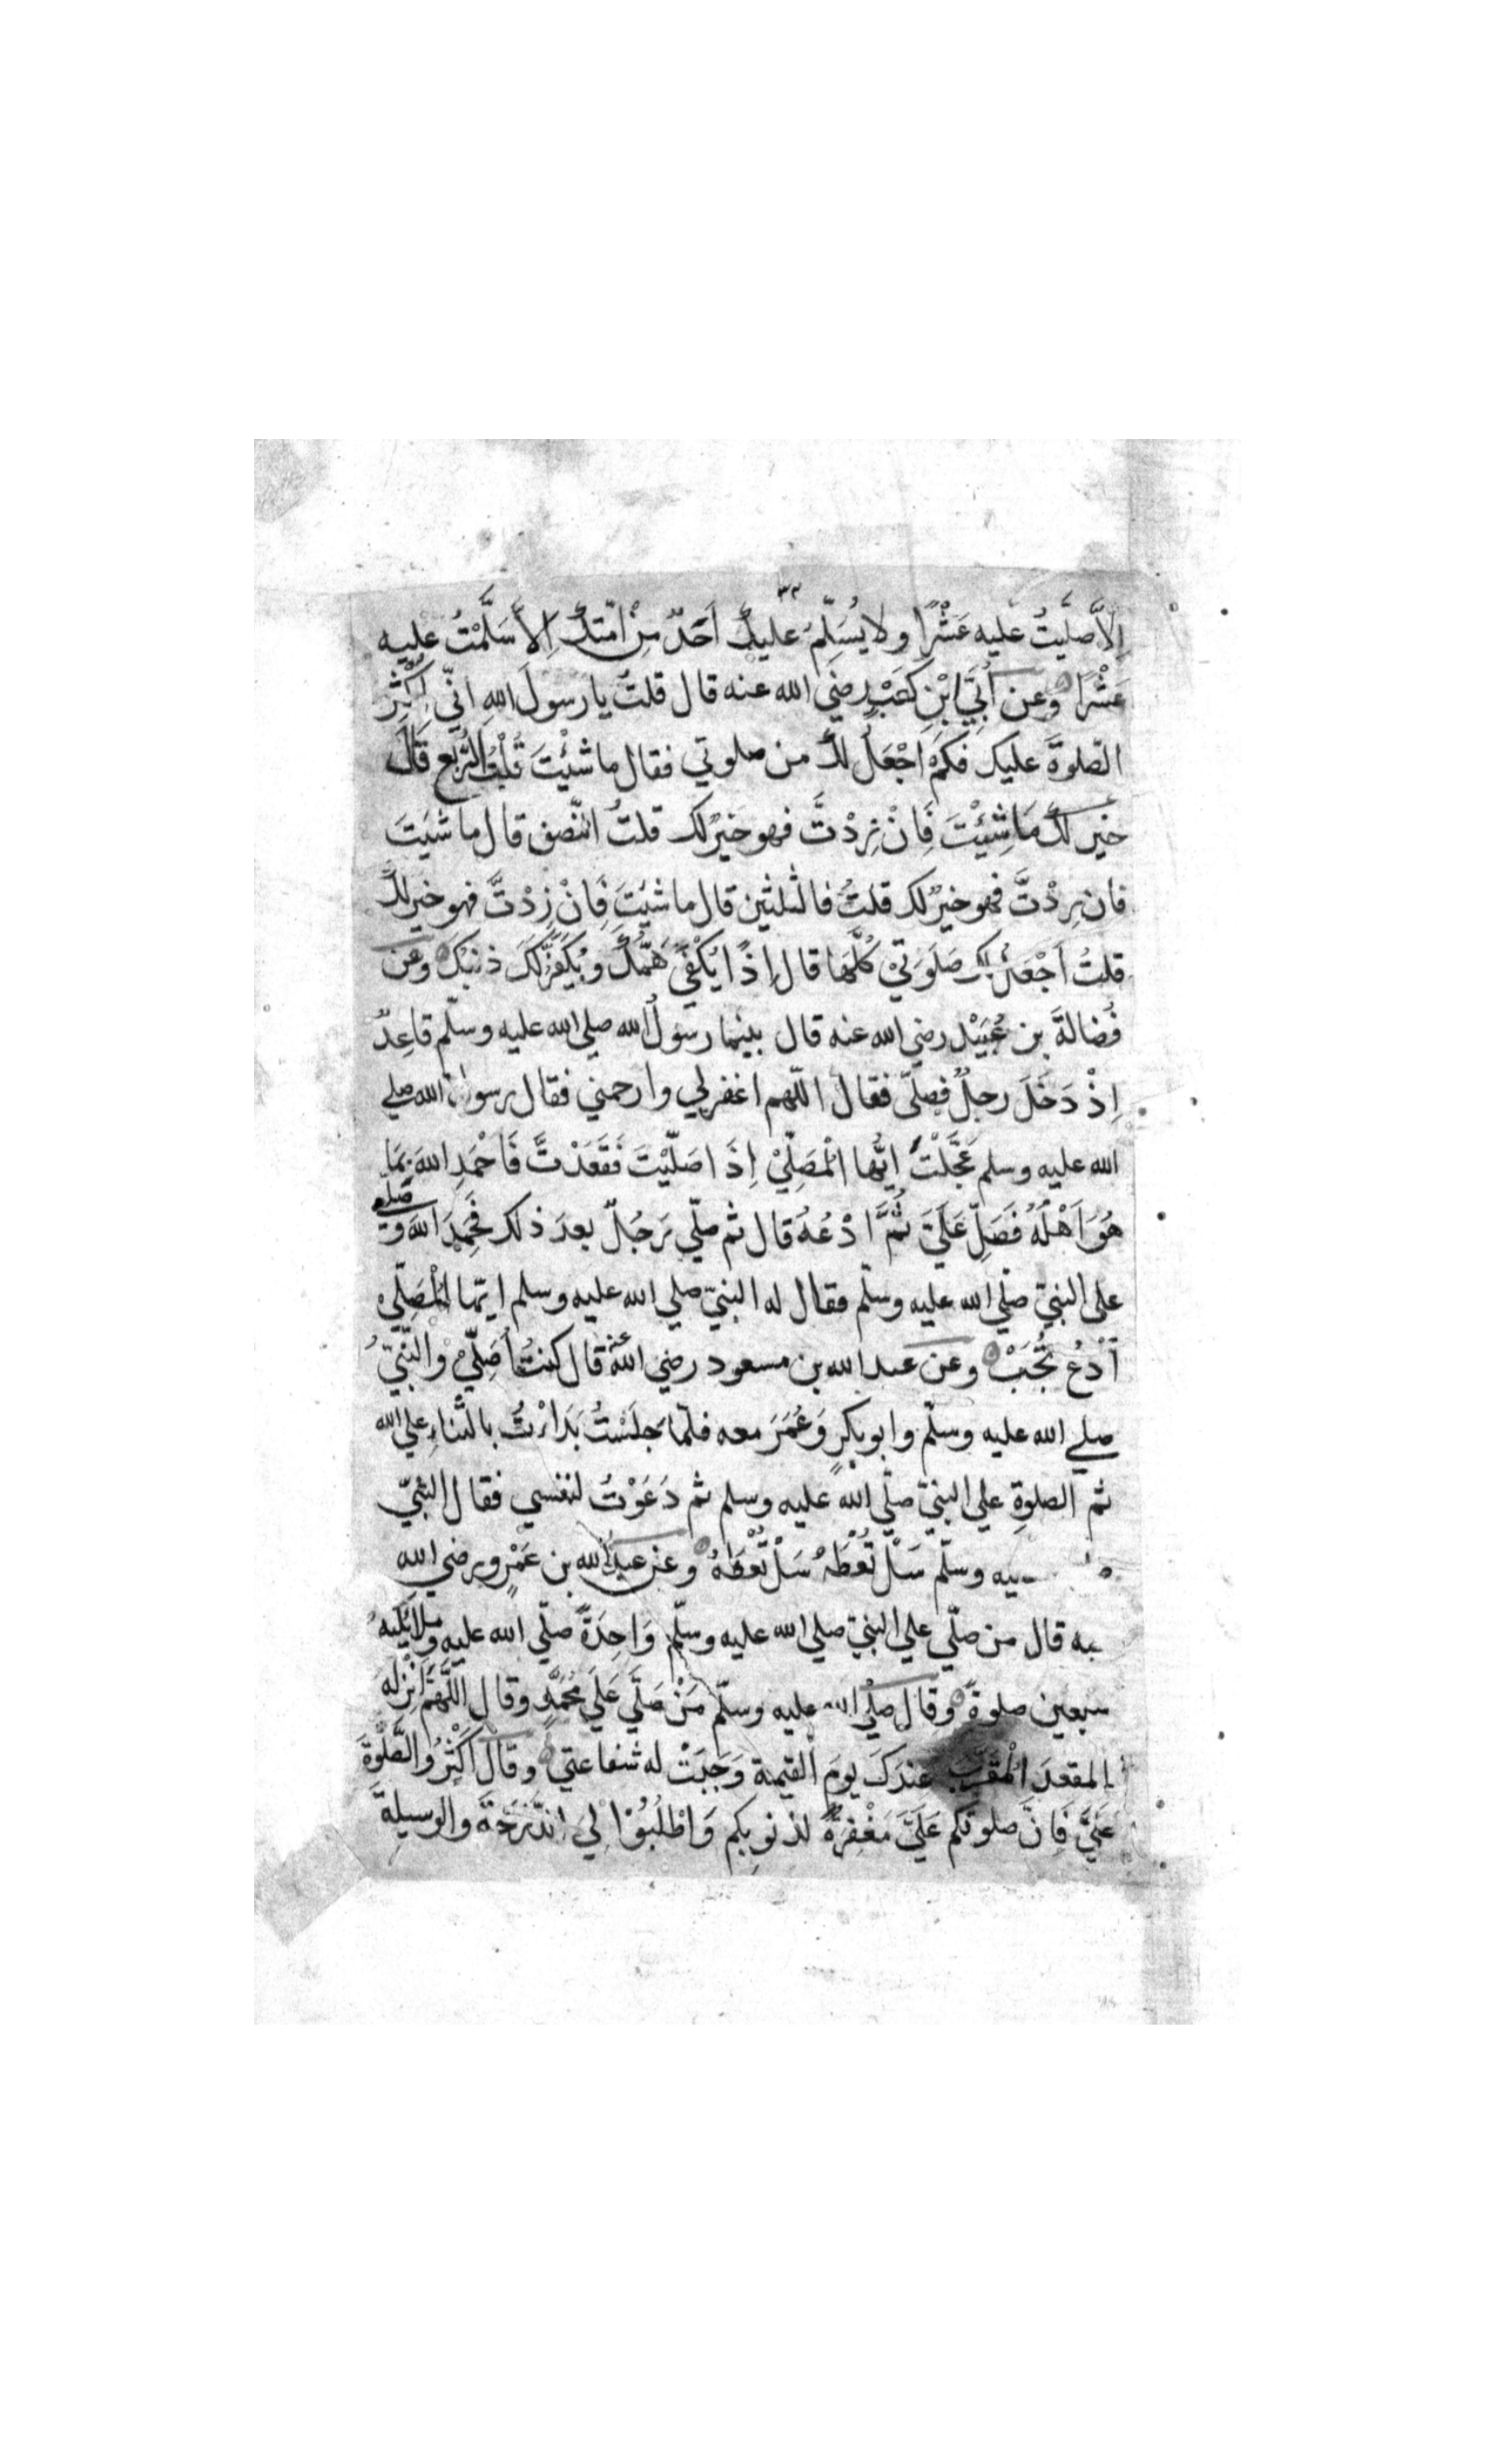 ٣٢
اِلاَّ صلَّيتُ عليه عَشْرًا ولا يُسَلِّمُ عليكَ اَحَدٌ مِنْ امّتك اِلاَّ سَلَّمْتُ عليه
عَشْرًا وعن اُبَيِّ ابْنِ كَعْبٍ رضي الله عنه قال قلتُ يا رسولَ اللهِ انّي اُكْثِرُ
الصّلوةَ عليك فكم اَجْعَلُ لكَ من صلوتي فقال ما شئْتَ قُلْتُ الرُّبع قَالَ
خير لك مَا شِئْتَ فَانْ زِدْتَّ فهو خيرٌ لك قلتُ النّصف قال ما شيَتَ
فان زِدْتَّ فهو خيرٌ لك قلتُ فالثلثين قال ما شئتَ فَانْ زِدْتَّ فهو خير لكَ
قلتُ اَجْعَلُ لك صَلَوتيْ كُلَّهَا قال اِذًا يُكْفَي هَمُّكَ ويُكَفَّرُ لَكَ ذنبك وعن
فُضالةَ بن عُبَيْد رضي الله عنه قال بينما رسولُ الله صلي الله عليه وسلّم قاعِدٌ
اِذْ دَخَلَ رجلٌ فصلّى فقال اللّهم اغفر لي وارحمني فقال رسول الله صلي
الله عليه وسلم عَجَّلْتَ ايّها الْمُصَلِّيْ اِذَا صَلَّيْتَ فَقَعَدْتَّ فَاحْمَدِ اللهَ بِمَا
هُوَ اَهْلُهُ فَصَلِّ عَلَيَّ ثُمَّ ادْعُهُ قال ثم صلّي رَجُلٌ بعدَ ذلك فَحَمِدَ اللهَ وَ صلّى
على النبيّ صلّي الله عليه وسلّم فقال له النبيّ صلي الله عليه وسلم ايّها المُصَلِّيْ
اُدْعُ تُجَبْ وعن عبد الله بن مسعود رضي الله عنه قال كنتُ اُصَلِّيْ والنّبيُّ
صلي الله عليه وسلّم وابو بكرٍ وَعُمَرَ معه فلمّا جَلَسْتُ بَدَاْتُ بالثّناءِ علي الله
ثم الصلوةِ علي النبيّ صلّي الله عليه وسلم ثم دَعَوْتُ لنفسي فقال النبيّ
عليه وسلّم سَلْ تُعْطَهْ سَلْ تُعْطَهْ وعن عبد الله بن عَمْرٍو رضي الله
قال من صلّي علي النبيّ صلي الله عليه وسلّم وَاحِدَةً صلّي الله عليه وملائكتُهُ
سبعين صلوةً وقال صلّي الله عليه وسلّم مَنْ صَلَّي عَلَي مُحَمَّدٍ وقال اللَّهُمَّ اَنْزِلْهُ
المقعدَ الْمُقَرَّبَ عِندَكَ يومَ القيمة وَجَبَتْ له شفاعتي وقال اَكْثِرُوا الصَّلوةَ
عَلَيَّ فَاِنَّ صلوتَكم عَلَيَّ مَغْفِرَةٌ لذنوبِكم وَاطْلُبُوْا لِيَ الدَّرَجَةَ والوسيلةَ